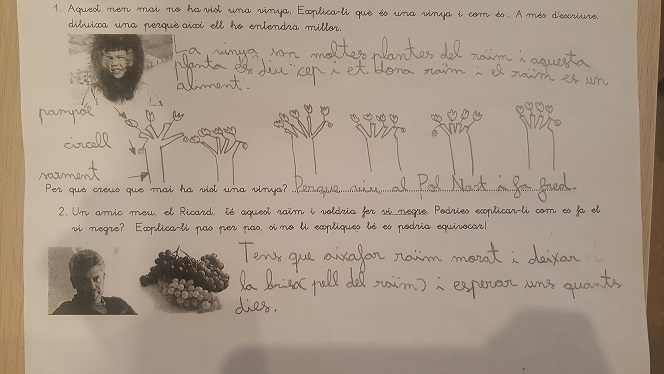 1. Aquest nen mai no ha vist una vinya. Explica-li què és una vinya i com és. A més d'escriure,
dibuixa una perquè així ell ho entendrà millor.
La vinya son moltes plantes del raïm i aquesta
planta es diu cep i et dona raïm i el raïm es un
aliment.
pampól
circell
sarment
Per què creus que mai ha vist una vinya? Perque viu al Pol Nort i fa fred.
2. Un amic meu, el Ricard, té aquest raïm i voldria fer vi negre. Podries explicar-li com es fa el
vi negre? Explica-li pas per pas, si no li expliques bé es podria equivocar!
Tens que aixafar raïm morat i deixar
la brisa (pell del raïm) i esperar uns quants
dies.